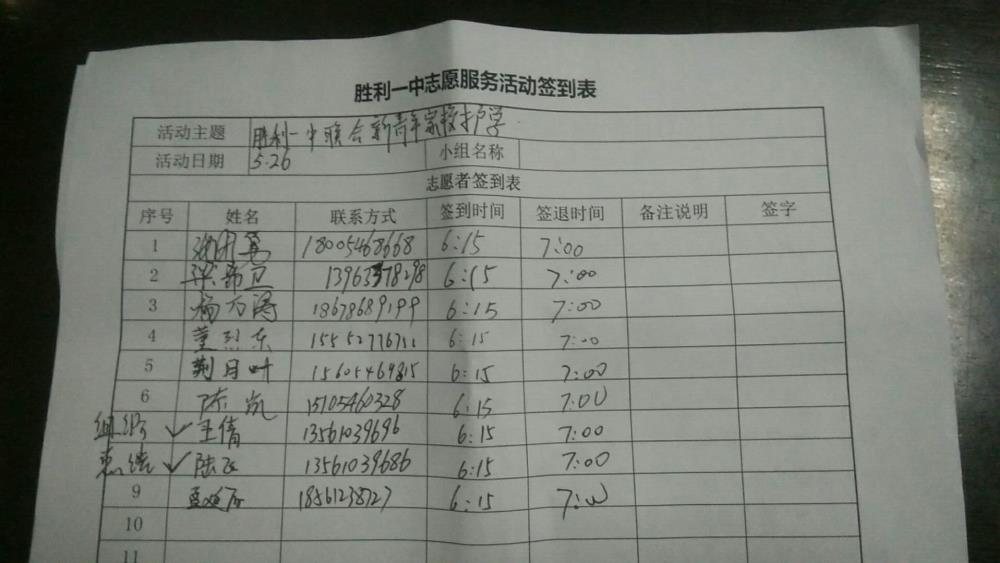 胜利一中志愿服务活动签到表
活动主题 胜利一中联合新青年家校护学
活动日期 5.26 小组名称
志愿者签到表
序号 姓名 联系方式 签到时间 签退时间 备注说明 签字
1 18005468668 6:15 7:00
2 梁希卫 13963378298 6:15 7:00
3 杨万涛 18678689199 6:15 7:00
4 董烈东 15552776711 6:15 7:00
5 荆月叶 15605469815 6:15 7:00
6 陈岚 15105460328 6:15 7:00
组织 ✓ 王倩 13561039696 6:15 7:00
✓ 陆飞 13561039686 6:15 7:00
9 18561238727 6:15 7:00
10
11